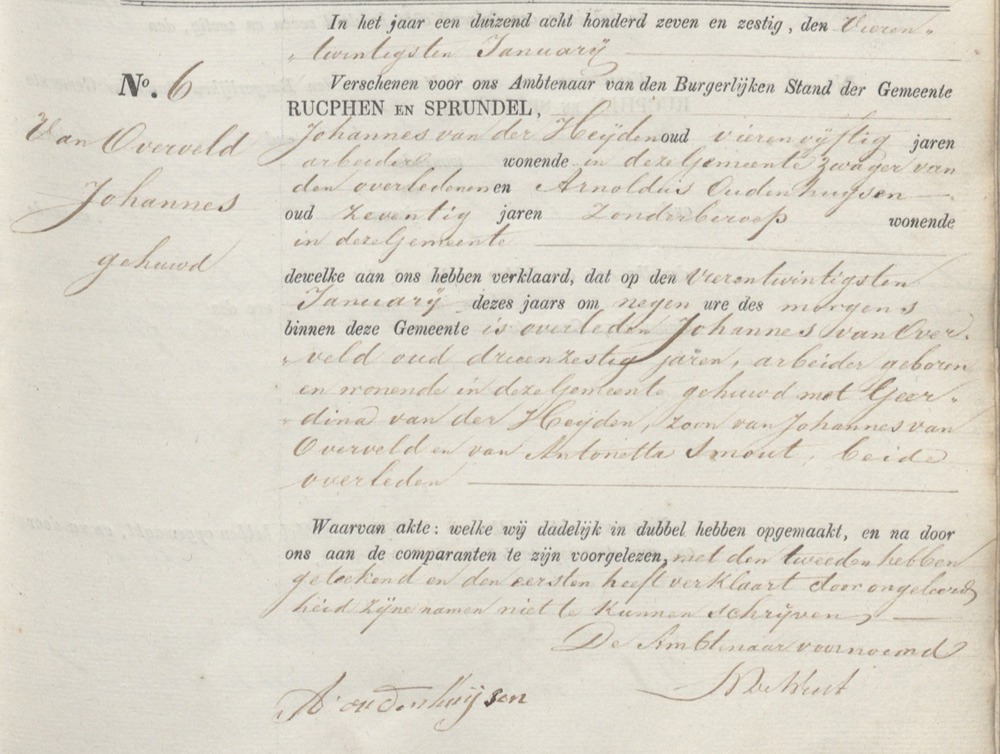 In het jaar een duizend acht honderd zeven en zestig, den Vieren„
„twintigsten Januarij
No. 6
Van Overveld
Johannes
gehuwd
Verschenen voor ons Ambtenaar van den Burgerlijken Stand der Gemeente
RUCPHEN EN SPRUNDEL,
Johannes van der Heijden oud vierenvijftig jaren
arbeider wonende in deze Gemeente zwager van
den overledenen en Arnoldus Oudenhuijsen
oud zeventig jaren Zonder beroep wonende
in deze Gemeente
dewelke aan ons hebben verklaard, dat op den vierentwintigsten
Januarij dezes jaars om negen ure des morgens
binnen deze Gemeente is overleden Johannes van Over„
„veld oud drieenzestig jaren, arbeider geboren
en wonende in deze Gemeente gehuwd met Geer„
„dina van der Heijden, zoon van Johannes van
Overveld en van Antonetta Smout, beide
overleden
Waarvan akte: welke wij dadelijk in dubbel hebben opgemaakt, en na door
ons aan de comparanten te zijn voorgelezen, met den tweeden hebben
geteekend en den eersten heeft verklaart door ongeleerd
heid zijne namen niet te kunnen schrijven
De Ambtenaar voornoemd
A oudenhuijsen